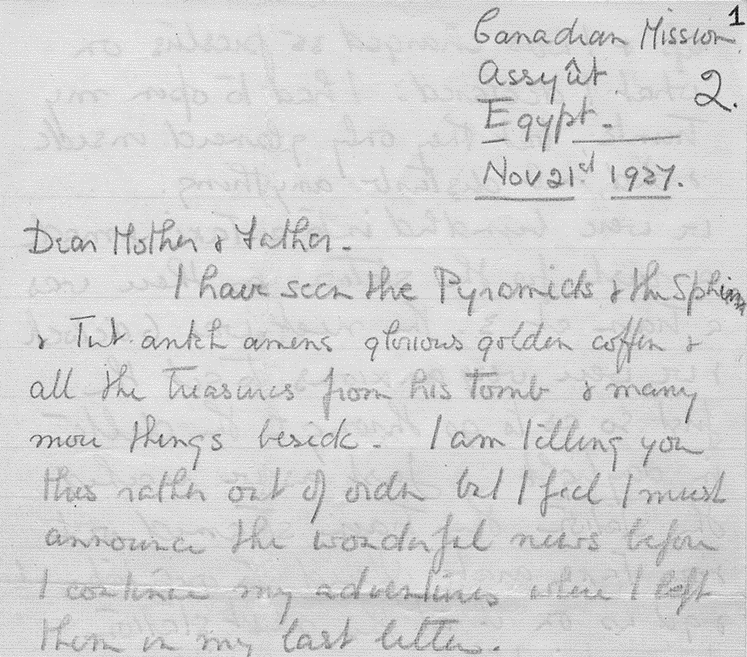 1
Canadian Mission
Assyût.
2.
Egypt -
Nov 21st 1927.
Dear Mother & Father -
I have seen the Pyramids & the Sphinx
& Tut ankh amens glorious golden coffin &
all the treasures from his tomb & many
more things beside - I am telling you
this rather out of order but I feel I must
announce the wonderful news before
I continue my adventures where I left
them in my last letter.